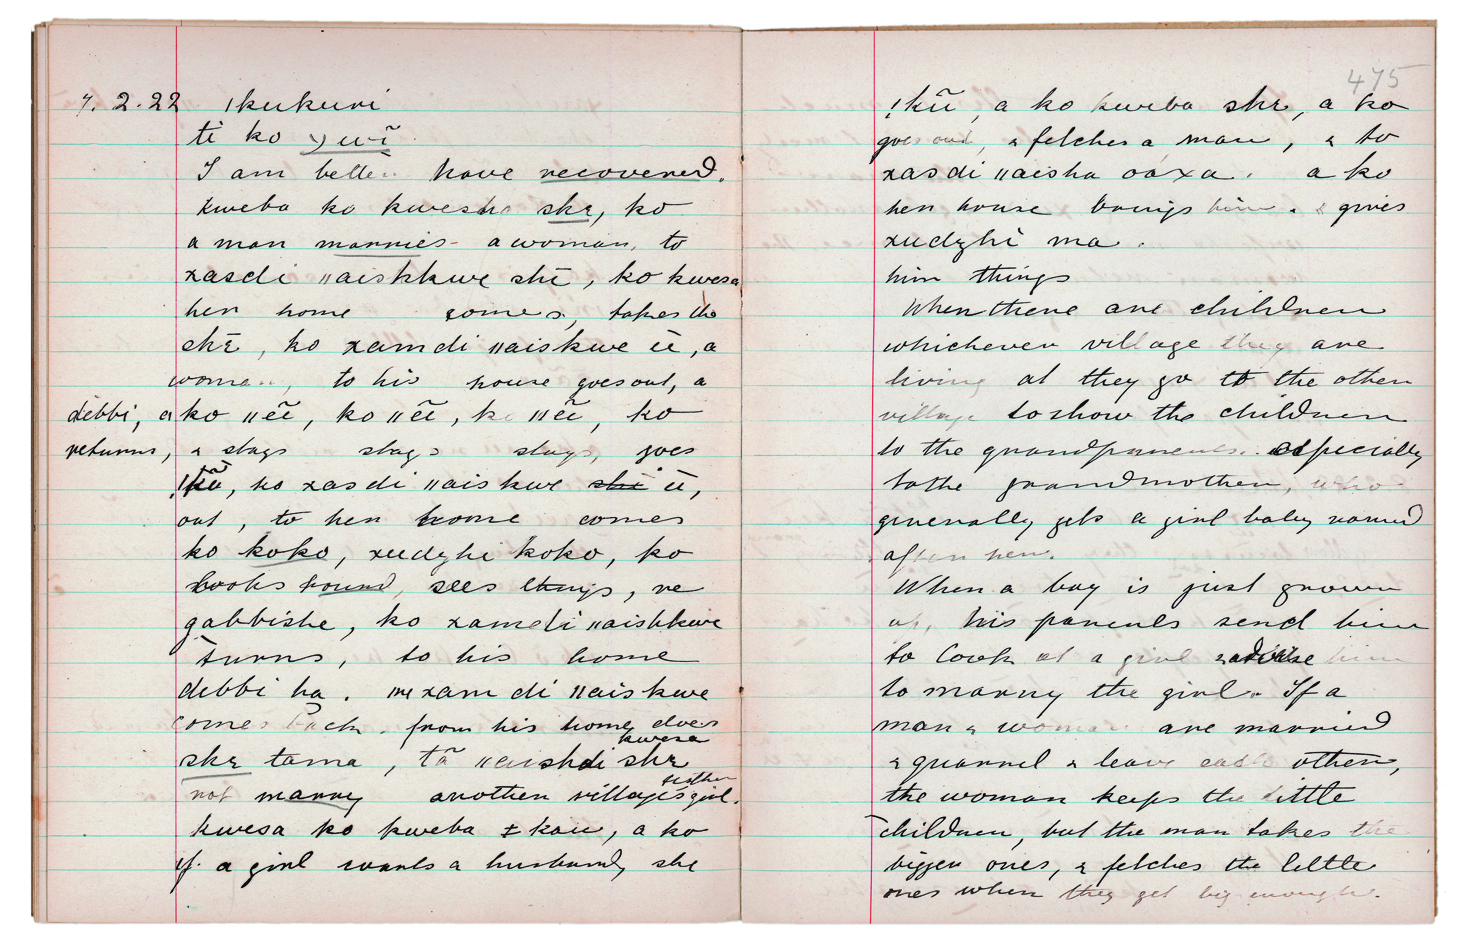 7.2.22 ǀkukuri
ti ko ywĩ
I am better have recovered.
kweba ko kwesha skɛ, ko
a man marries a woman, to
xasdi ǁaishkwe shĩ, ko kwesa
her home comes, takes the
skɛ, ko xamdi ǁaiskwe ũ, a
woman, to his house goes out, a
debbi, a ko ǁẽĩ, ko ǁẽĩ, ko ǁẽĩ, ko
returns, & stays stays stays, goes
ǃkũ, ko xasdi ǁaiskwe shi ũ,
out, to her home comes
ko koko, xudzhi koko, ko
looks round, sees things, re
gabbishe, ko xamdi ǁaishkwe
turns, to his home
debbi ha. xamdi ǁaiskwe
comes back. from his home does
kwesa
skɛ tama, tã ǁaishdi skɛ
not marry another village's girl.
further
kwesa ko kweba ǂkau, a ko
if a girl wants a husband, she
475
ǃkũ, a ko kweba skɛ, a ko
goes out, & fetches a man, & to
xasdi ǁaisha oáxa. a ko
her house brings him. & gives
xudzhi ma.
him things
When there are children
whichever village they are
living at they go to the other
village to show the children
to the grandparents. especially
to the grandmother, who
generally gets a girl baby named
after her.
When a boy is just grown
up, his parents send him
to look at a girl & advise him
to marry the girl. If a
man & woman are married
& quarrel & leave each other,
the woman keeps the little
children, but the man takes the
bigger ones, & fetches the little
ones when they get big enough.